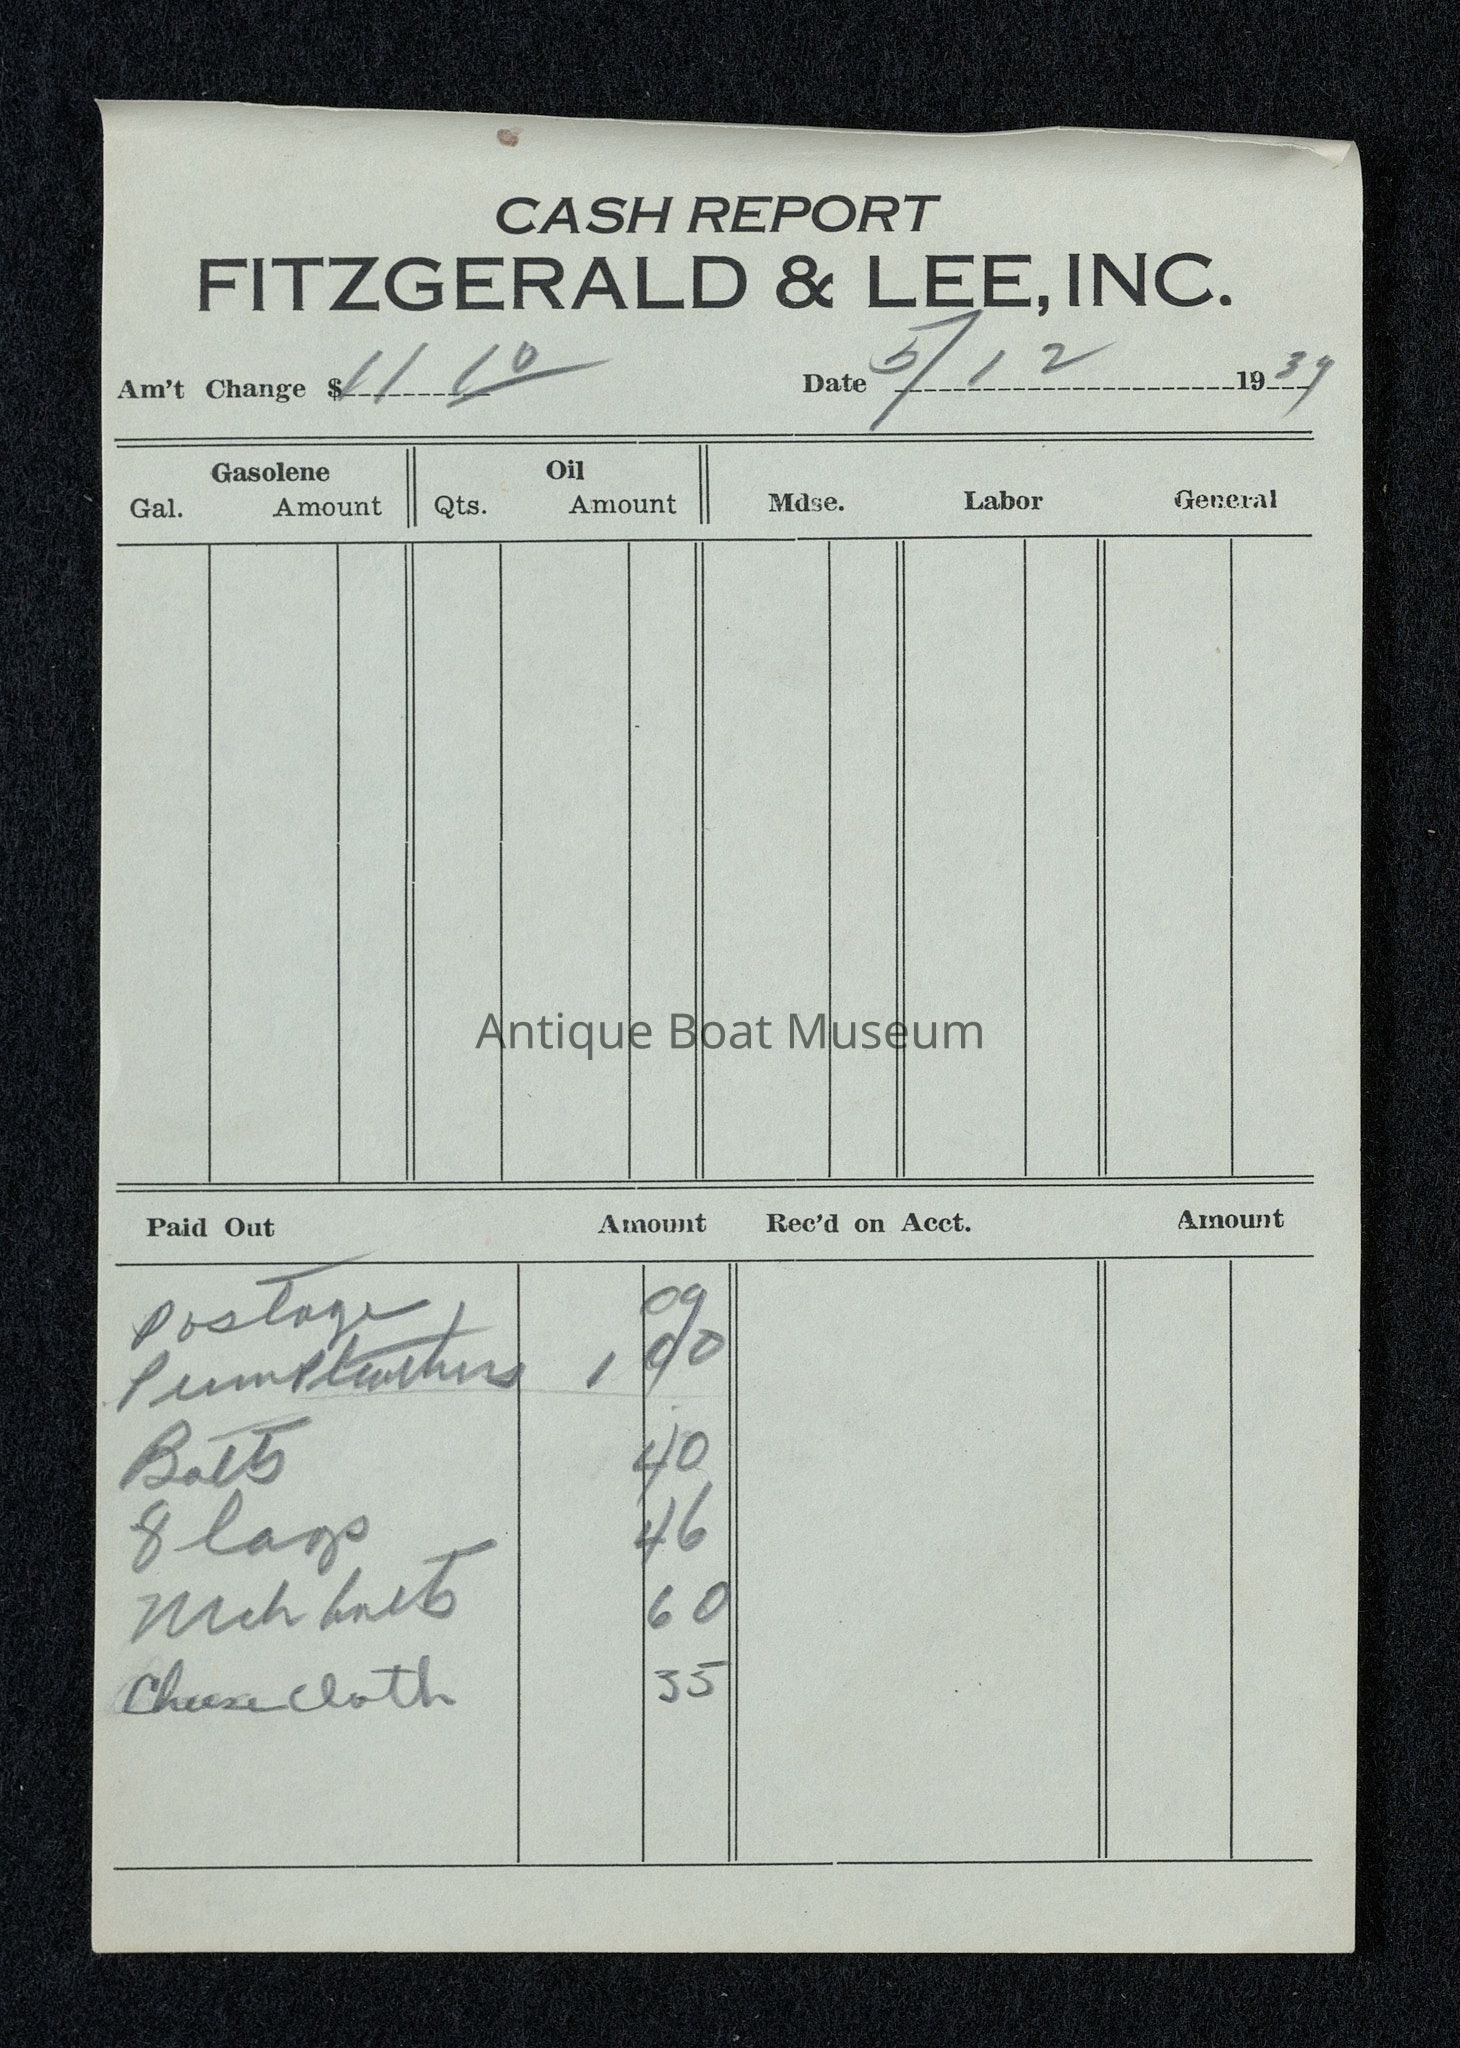 CASH REPORT
FITZGERALD & LEE, INC.
Am't Change $ 11 10 Date 5/12 1939
Gasolene Oil
Gal. Amount Qts. Amount Mdse. Labor General
Antique Boat Museum
Paid Out Amount Rec'd on Acct. Amount
Postage 09
Pump leathers 1 00
Bolts 40
8 lags 46
Mch bolts 60
Cheese cloth 35